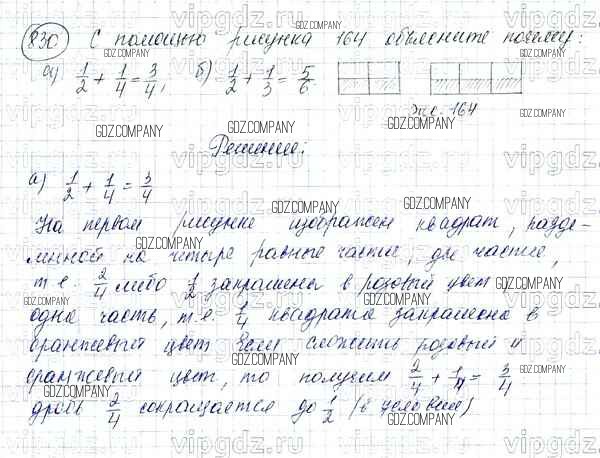 830 С помощью рисунка 164 объясните почему:
а) 1/2 + 1/4 = 3/4, б) 1/2 + 1/3 = 5/6
Рис. 164
Решение.
а) 1/2 + 1/4 = 3/4
На первом рисунке изображен квадрат, разде-
ленной на четыре равные части, две части,
т.е. 2/4 либо 1/2 закрашены в розовый цвет
одна часть, т.е. 1/4 квадрата закрашена в
оранжевый цвет. Если сложить розовый и
оранжевый цвет, то получим 2/4 + 1/4 = 3/4
дробь 2/4 сокращается до 1/2 (в условии)
GDZ.COMPANY
vipgdz.ru